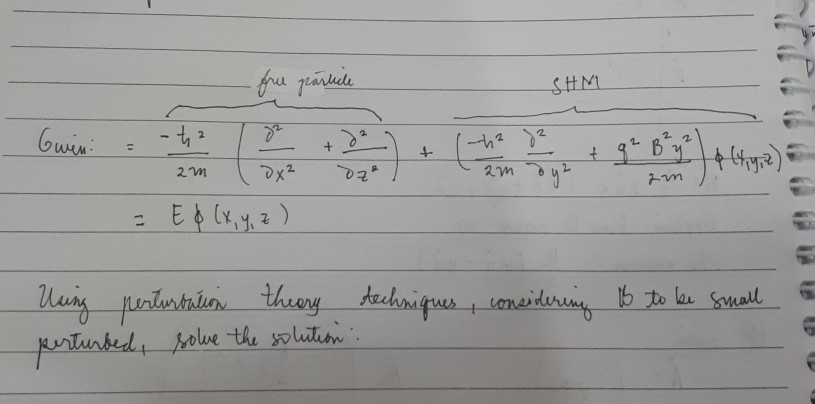 free particle SHM
Given: = -ħ²/2m (∂²/∂x² + ∂²/∂z²) + (-ħ²/2m ∂²/∂y² + q² B² y²/2m) ϕ(x,y,z)
= E ϕ(x,y,z)
Using perturbation theory techniques, considering B to be small
perturbed, solve the solution: